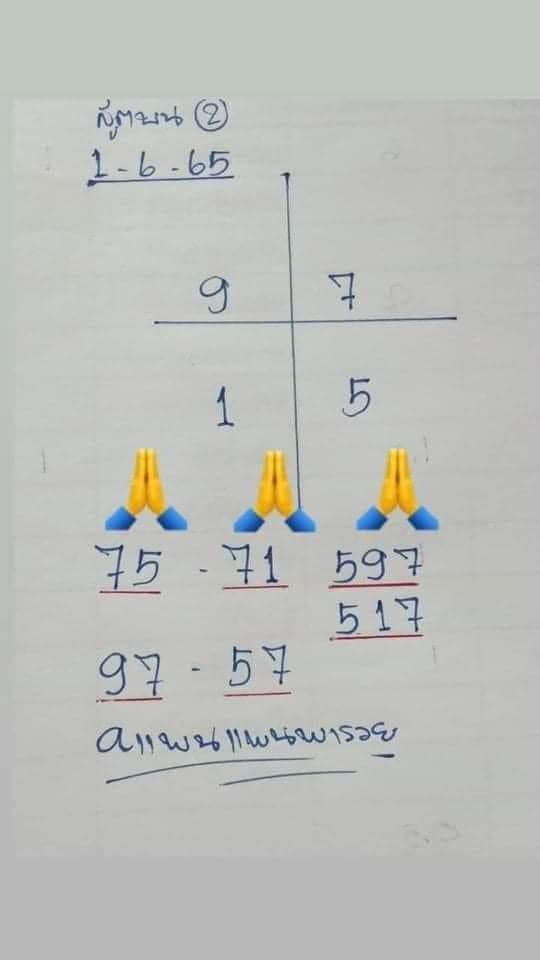 สูตรบน ②
1-6-65
9 7
1 5
75 - 71 597
517
97 - 57
แพนแพนพารวย